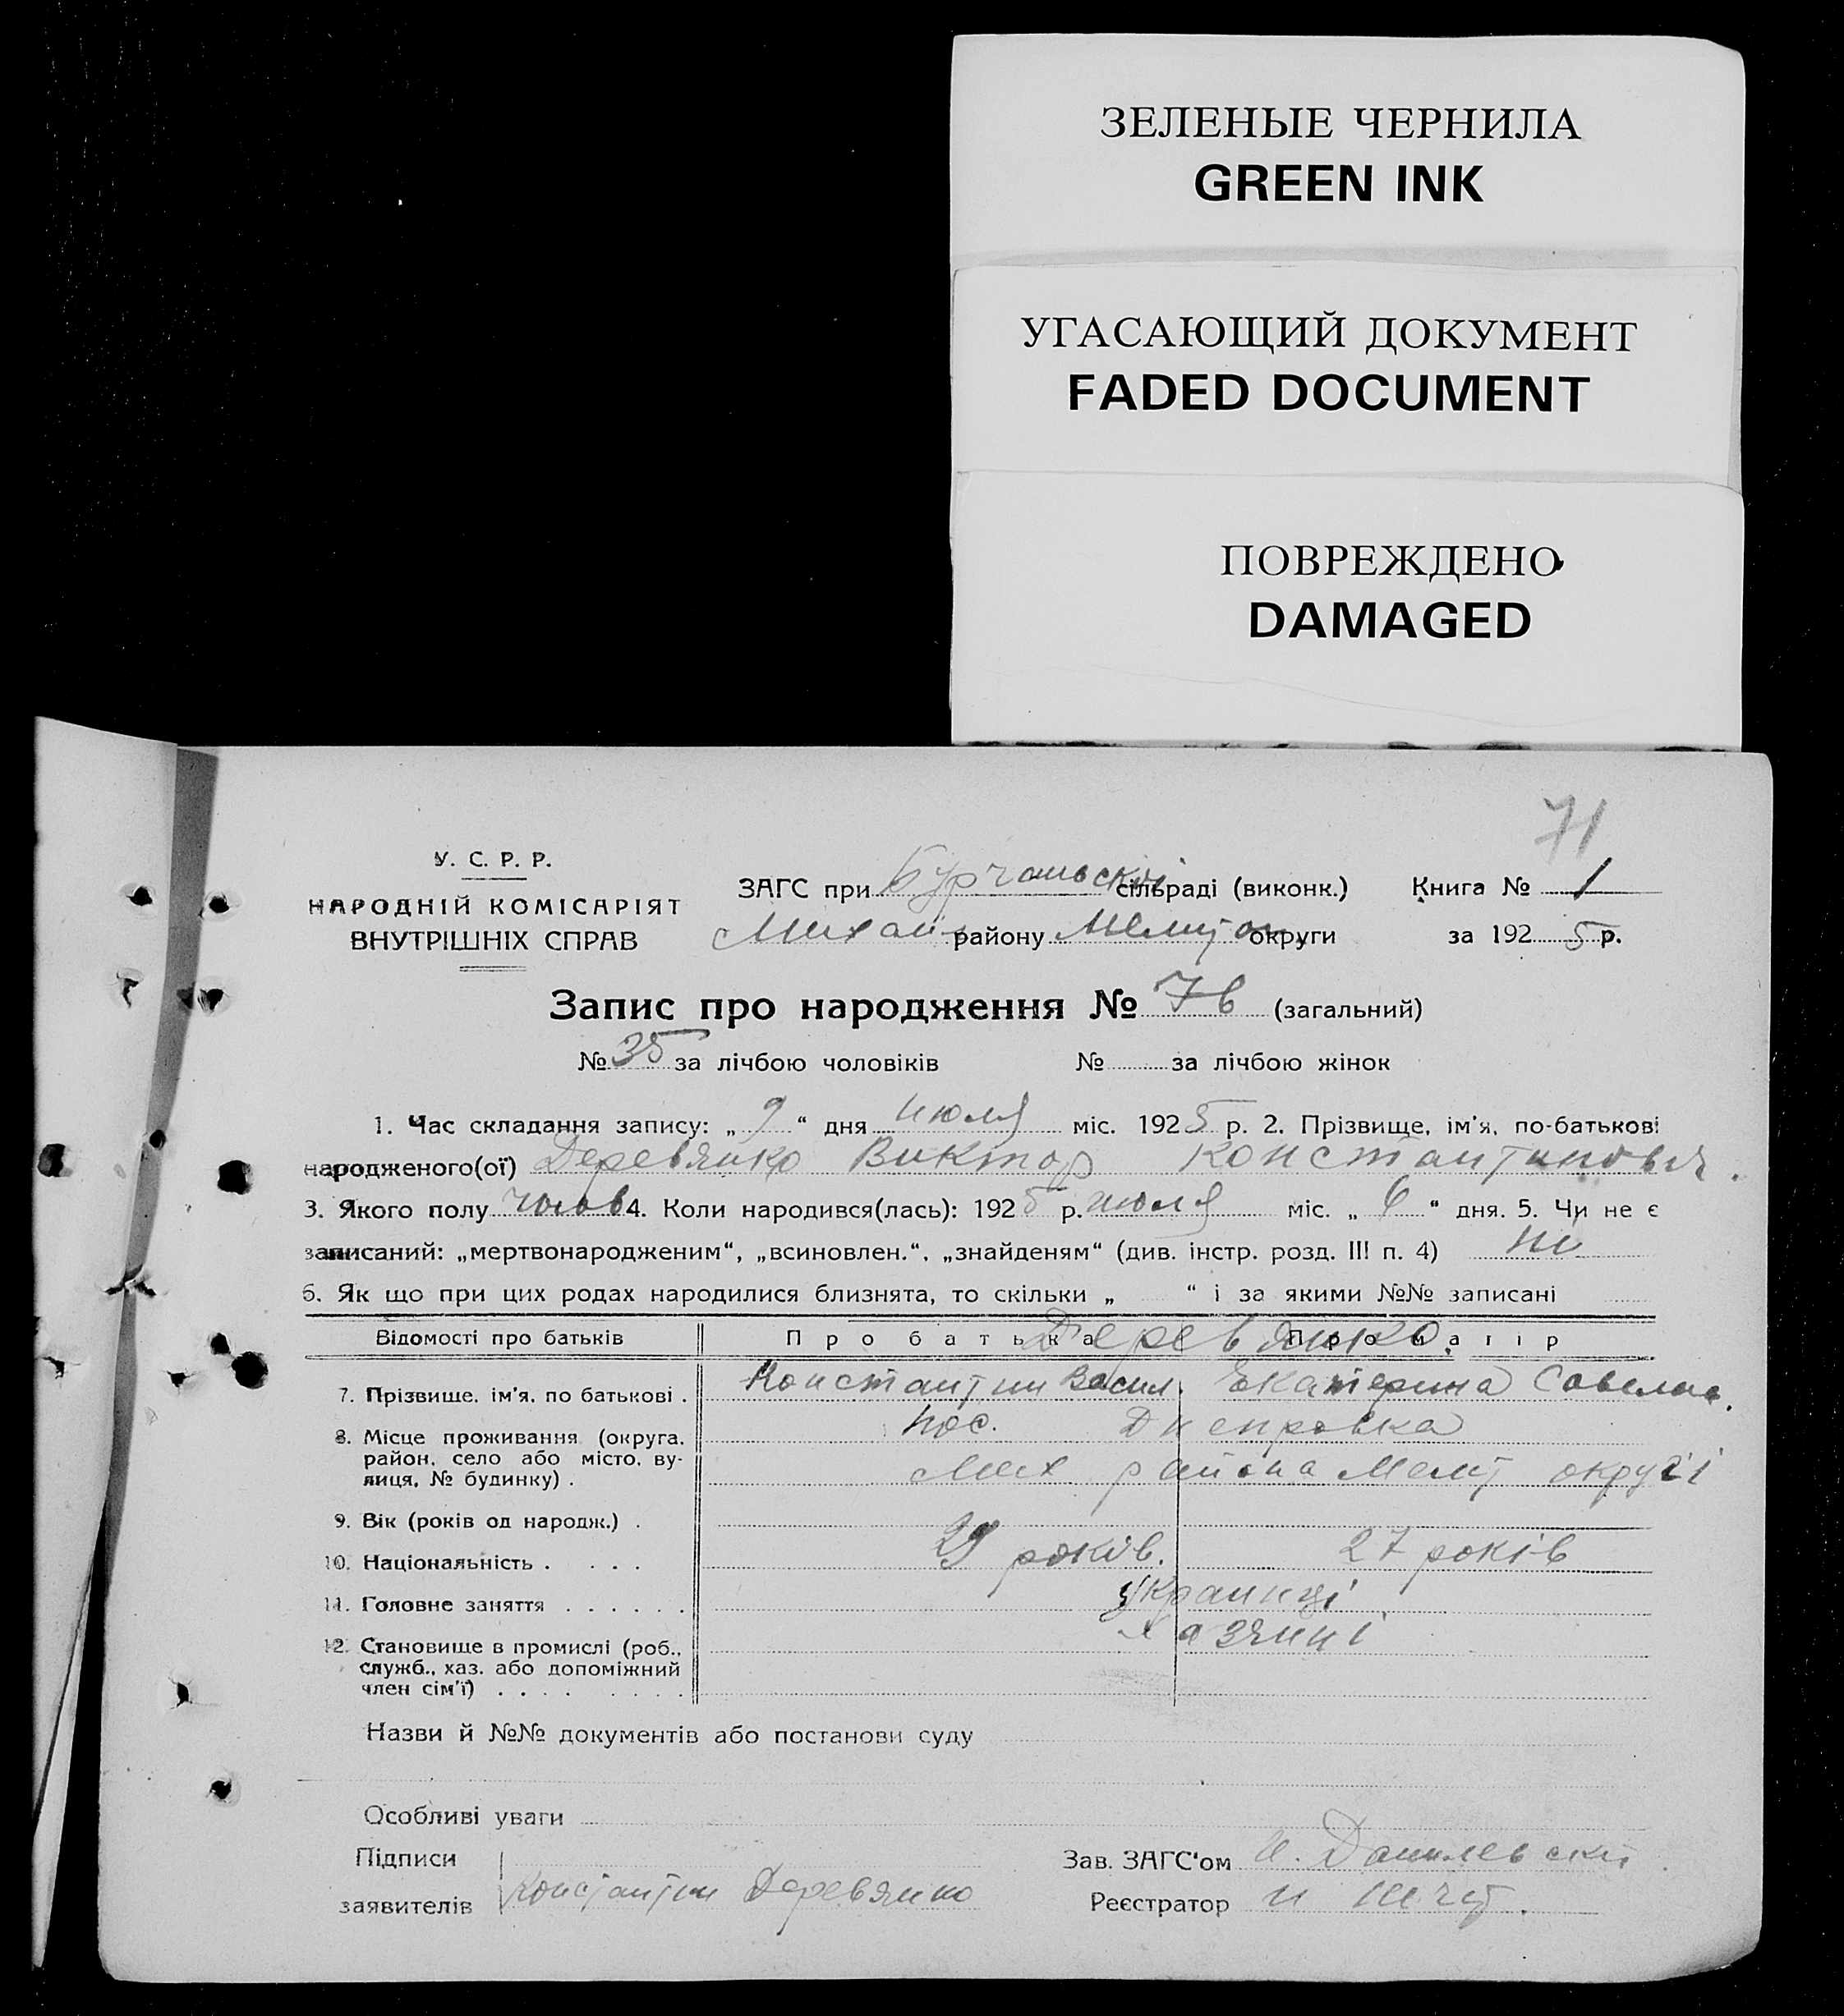 ЗЕЛЕНЫЕ ЧЕРНИЛА
GREEN INK
УГАСАЮЩИЙ ДОКУМЕНТ
FADED DOCUMENT
ПОВРЕЖДЕНО
DAMAGED
71
У. С. Р. Р.
НАРОДНІЙ КОМІСАРІЯТ
ВНУТРІШНІХ СПРАВ
ЗАГС при сільраді (виконк.) Книга № 1
Михай району Мелит округи за 1925 р.
Запис про народження № 76 (загальний)
№ 35 за лічбою чоловіків № за лічбою жінок
1. Час складання запису: „ 9 “ дня июля міс. 1925 р. 2. Прізвище, ім'я, по-батькові
народженого(ої) Деревянко Виктор Константинович.
3. Якого полу чолов 4. Коли народився(лась): 1925 р. июля міс. „ 6 “ дня. 5. Чи не є
записаний: „мертвонародженим“, „всиновлен.“, „знайденям“ (див. інстр. розд. III п. 4) ні
6. Як що при цих родах народилися близнята, то скільки „ “ і за якими №№ записані
Відомості про батьків Про батька Про матір
Деревянко.
7. Прізвище, ім'я, по батькові . Константин Васил. Екатерина Савельев.
8. Місце проживання (округа, пос. Днепровка
район, село або місто, ву-
лиця, № будинку) . Мих района Мелит округі
9. Вік (років од народж.) .
10. Національність . . . . 29 років. 27 років
11. Головне заняття . . . . . . Украинці
12. Становище в промислі (роб., Хазяині
служб., хаз. або допоміжний
член сім'ї) . . . . . . . .
Назви й №№ документів або постанови суду
Особливі уваги
Підписи
заявителів Константин Деревянко
Зав. ЗАГС'ом Данилевский
Реєстратор